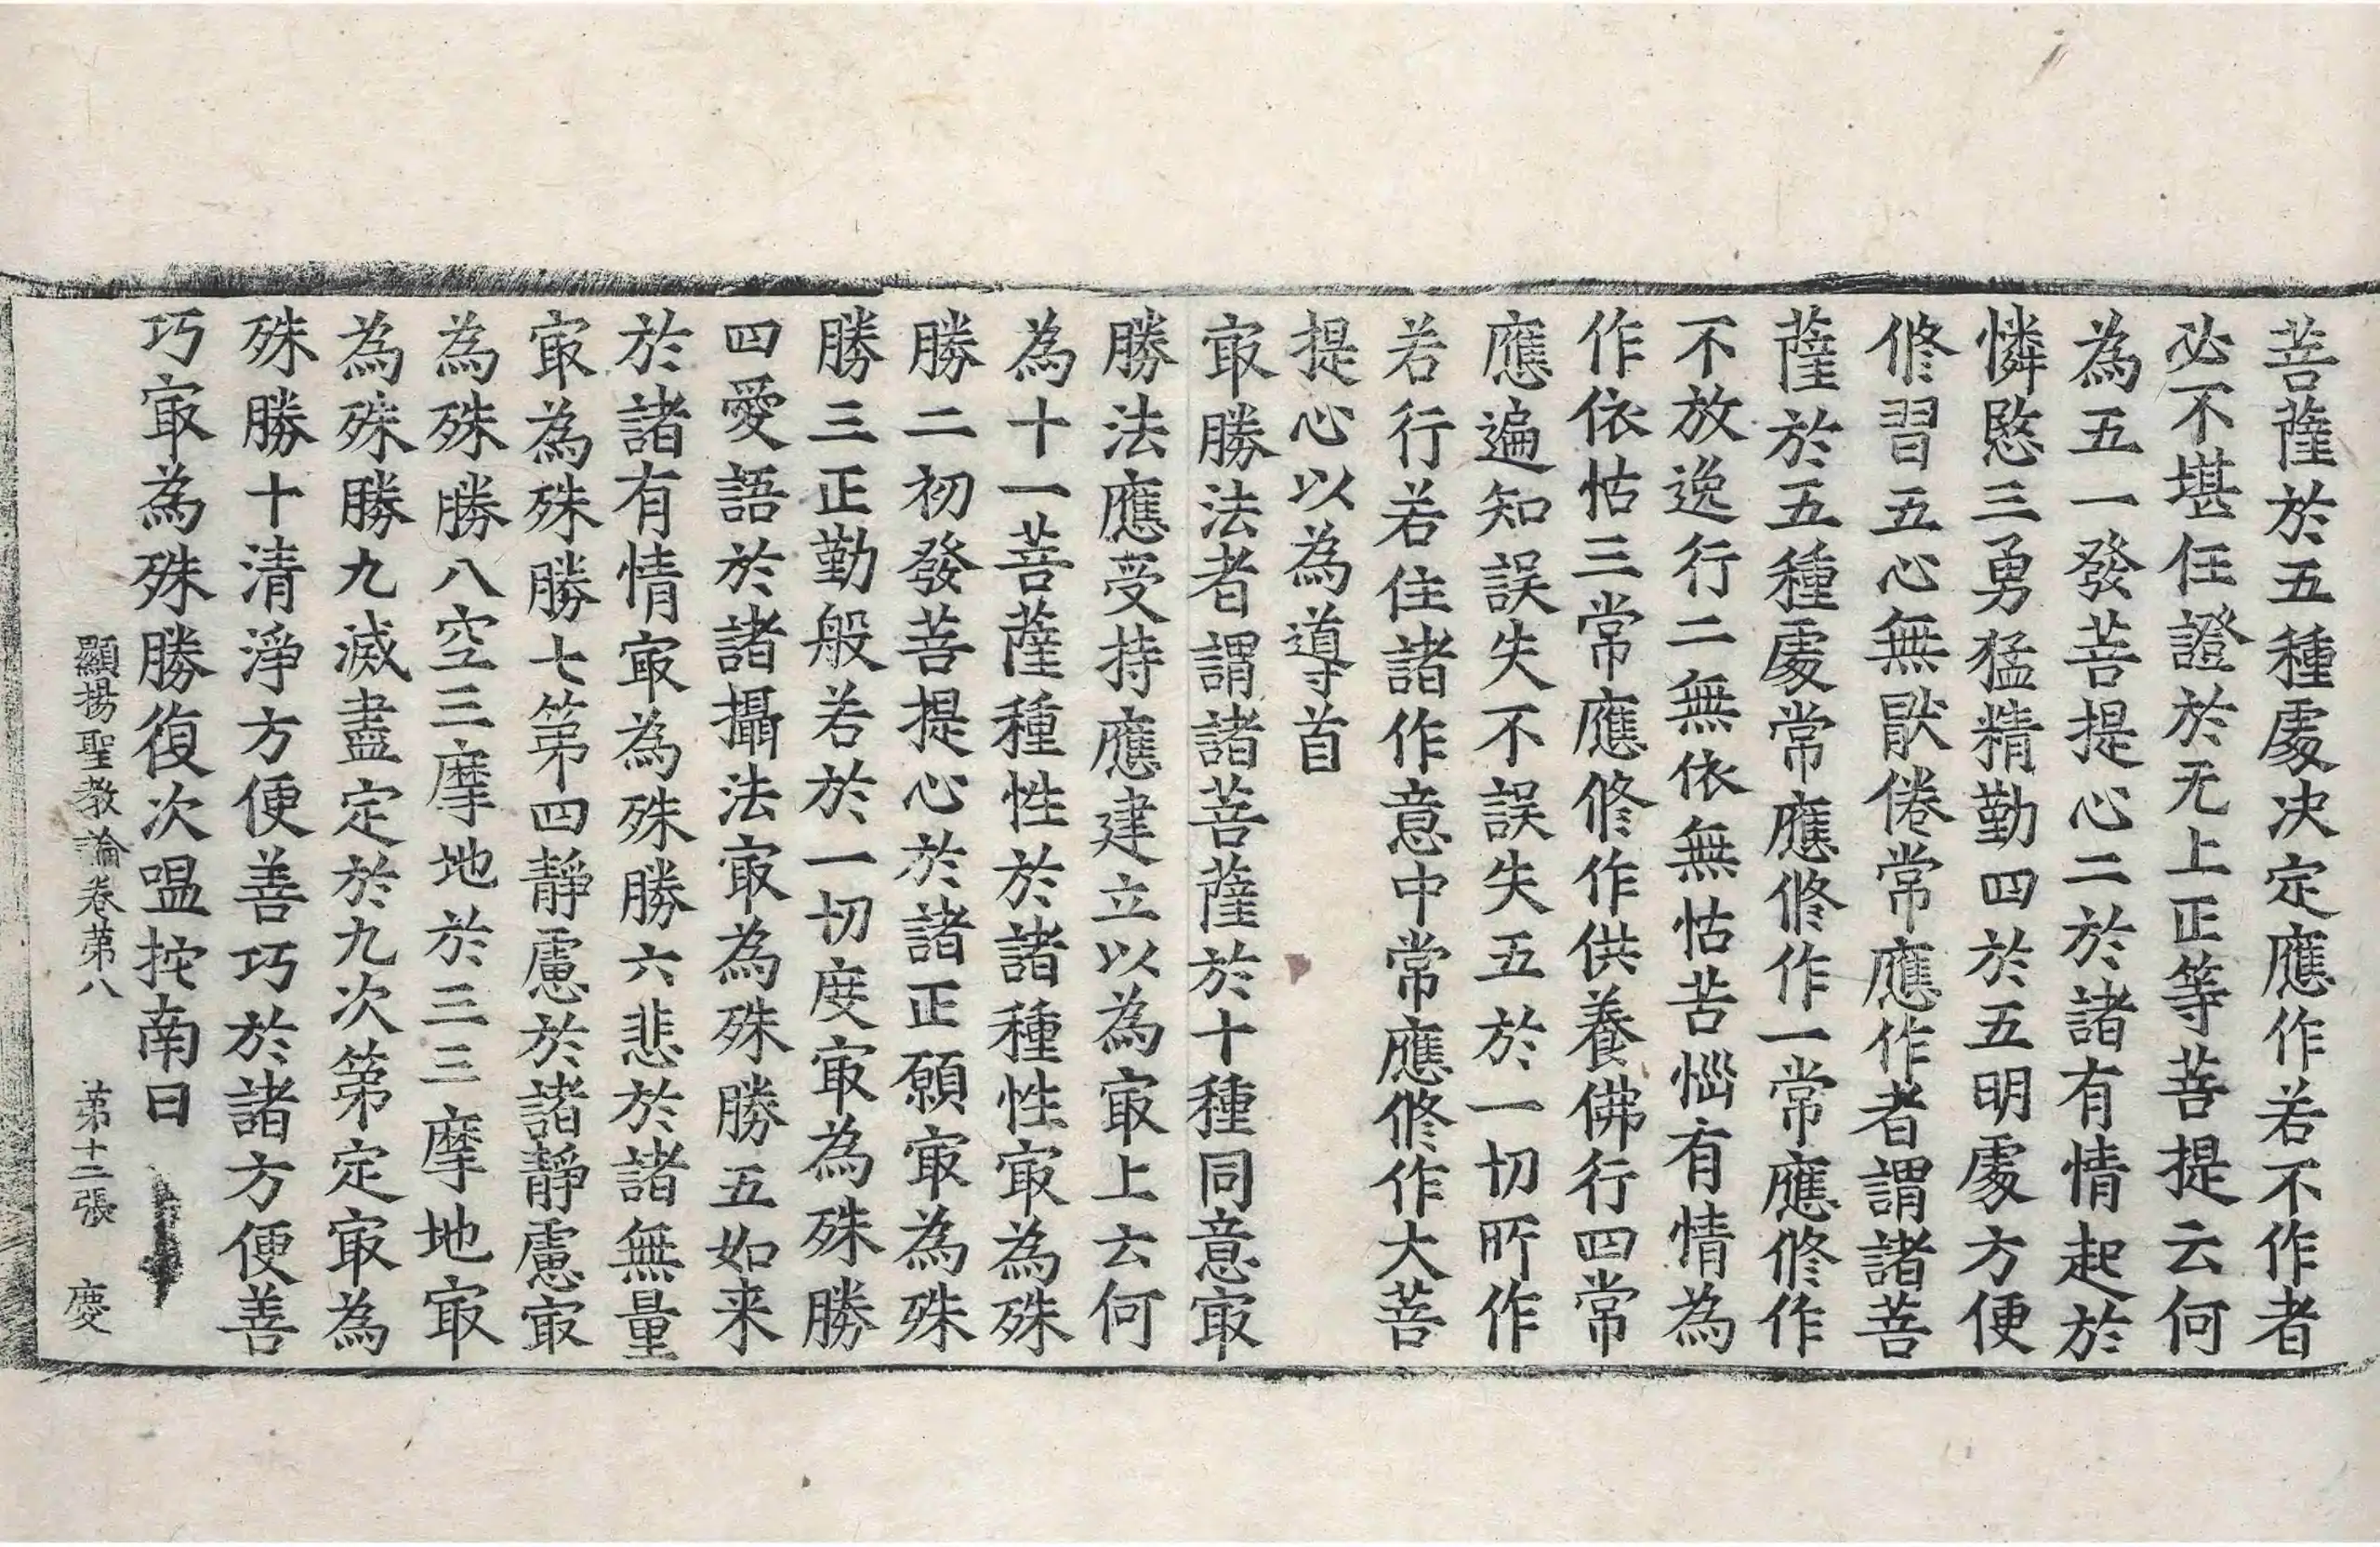 菩薩於五種處决定應作若不作者
必不堪任證於无上正等菩提云何
為五一發菩提心二於諸有情起於
憐愍三勇猛精勤四於五明處方便
修習五心無猒倦常應作者謂諸菩
薩於五種處常應修作一常應修作
不放逸行二無依無怙苦惱有情為
作依怙三常應修作供養佛行四常
應遍知誤失不誤失五於一切所作
若行若住諸作意中常應修作大菩
提心以為導首
㝡勝法者謂諸菩薩於十種同意㝡
勝法應受持應建立以為㝡上云何
為十一菩薩種性於諸種性㝡為殊
勝二初發菩提心於諸正願㝡為殊
勝三正勤般若於一切度㝡為殊勝
四愛語於諸攝法㝡為殊勝五如来
於諸有情㝡為殊勝六悲於諸無量
㝡為殊勝七第四靜慮於諸靜慮㝡
為殊勝八空三摩地於三三摩地㝡
為殊勝九滅盡定於九次第定㝡為
殊勝十清淨方便善巧於諸方便善
巧㝡為殊勝復次嗢拕南曰
顯揚聖教論卷第八 第十二張 慶